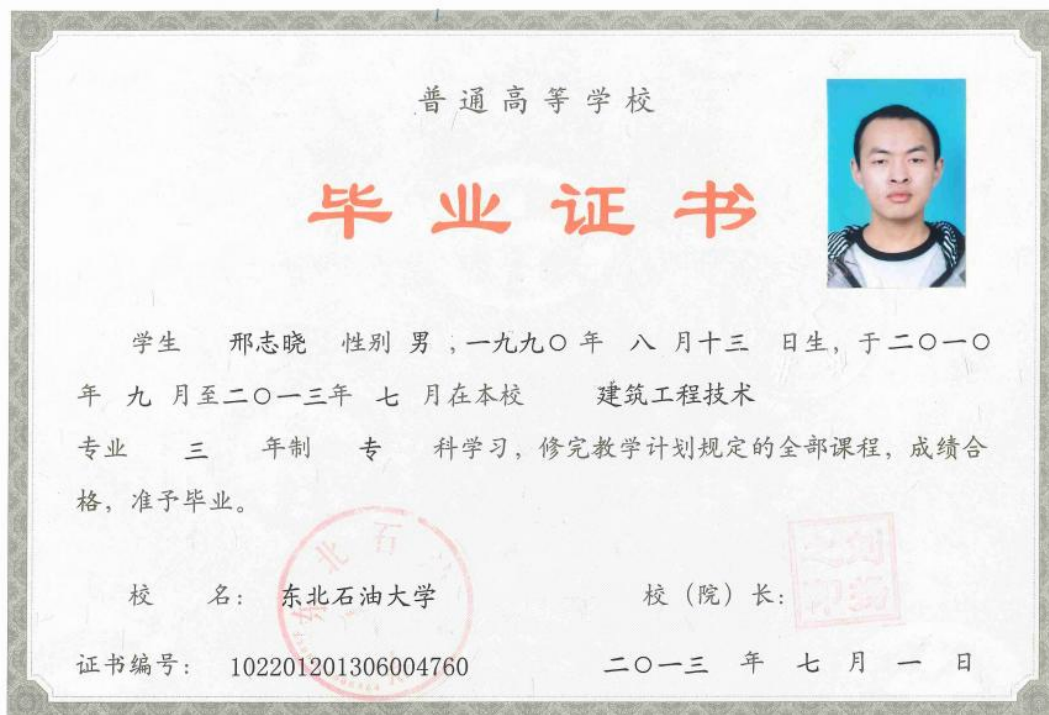 普通高等学校
毕业证书
学生 邢志晓 性别 男 ，一九九〇 年 八 月十三 日生，于二〇一〇
年 九 月至二〇一三年 七 月在本校 建筑工程技术
专业 三 年制 专 科学习，修完教学计划规定的全部课程，成绩合
格，准予毕业。
东北石
校 名： 东北石油大学 校（院）长：
证书编号： 102201201306004760 二〇一三 年 七 月 一 日